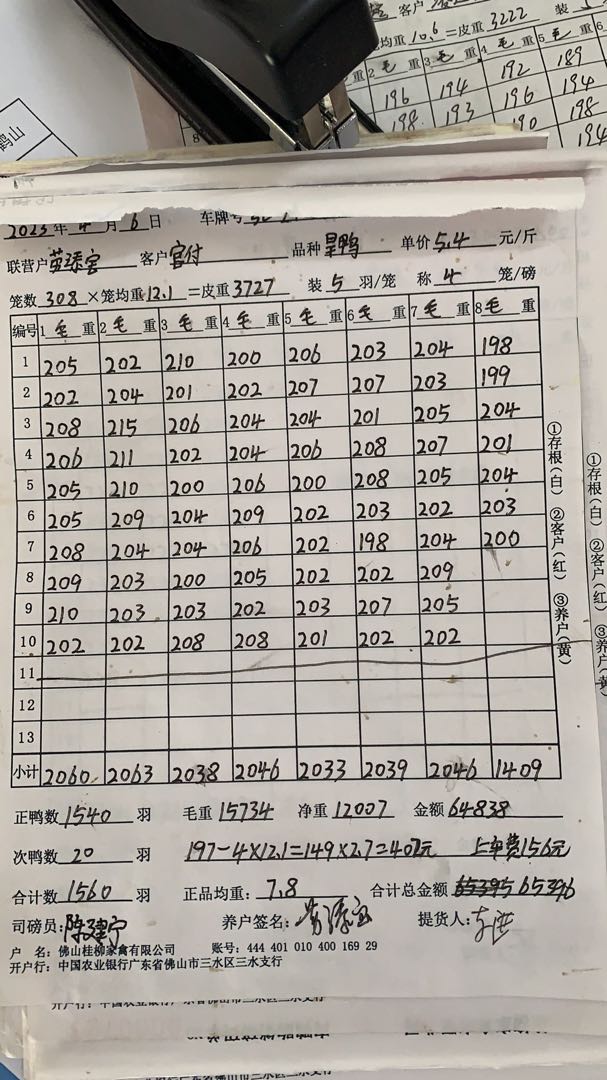 鹤山
客户
均重 10.6 =皮重 3222 装
2 毛 重 3 毛 重 4 毛 重 5 毛 重 6
196 194 192 189
198 193 196 194
190 198
194
2023 年 4 月 6 日 车牌号
联营户 客户 宫付 品种 旱鸭 单价 5.4 元/斤
笼数 308 ×笼均重 12.1 =皮重 3727 装 5 羽/笼 称 4 笼/磅
编号 1 毛 重 2 毛 重 3 毛 重 4 毛 重 5 毛 重 6 毛 重 7 毛 重 8 毛 重
1 205 202 210 200 206 203 204 198
2 202 204 201 202 207 207 203 199
3 208 215 206 204 204 201 205 204
4 206 211 202 204 206 208 207 201
5 205 210 200 206 200 208 205 204
6 205 209 204 209 202 203 202 203
7 208 204 204 206 202 198 204 200
8 209 203 200 205 202 202 209
9 210 203 203 202 203 207 205
10 202 202 208 208 201 202 202
11
12
13
小计 2060 2063 2038 2046 2033 2039 2046 1409
①存根(白) ②客户(红) ③养户(黄)
①存根(白) ②客户(红) ③养户(黄)
正鸭数 1540 羽 毛重 15734 净重 12007 金额 64838
次鸭数 20 羽 197-4×12.1=149×2.7=402元 上车费156元
合计数 1560 羽 正品均重: 7.8 合计总金额 65395 65396
司磅员: 陈建宁 养户签名: 提货人:
户 名: 佛山桂柳家禽有限公司 账号: 444 401 010 400 169 29
开户行: 中国农业银行广东省佛山市三水区三水支行
开户行: 中国农业银行广东省佛山市三水区三水支行